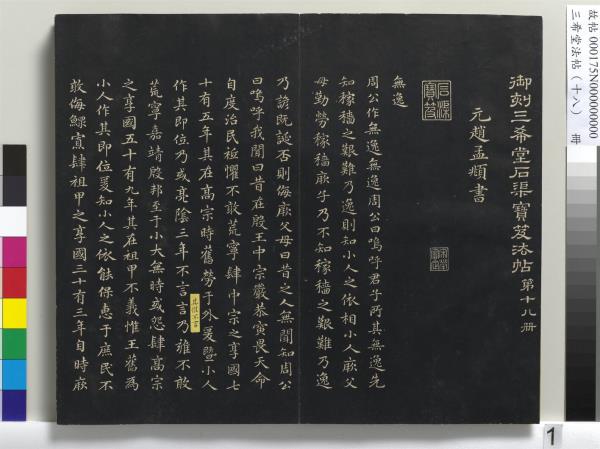 故帖 000175N000000000
三希堂法帖（十八） 冊
御刻三希堂石渠寶笈法帖 第十八冊
元趙孟頫書
石渠寶笈
無逸
周公作無逸無逸周公曰嗚呼君子所其無逸先
知稼穡之艱難乃逸則知小人之依相小人厥父
母勤勞稼穡厥子乃不知稼穡之艱難乃逸
乃諺既誕否則侮厥父母曰昔之人無聞知周公
曰嗚呼我聞曰昔在殷王中宗嚴恭寅畏天命
自度治民祗懼不敢荒寧肆中宗之享國七
十有五年其在高宗時舊勞于外爰暨小人
作其即位乃或亮陰三年不言言乃雍不敢
其惟不言
荒寧嘉靖殷邦至于小大無時或怨肆高宗
之享國五十有九年其在祖甲不義惟王舊為
小人作其即位爰知小人之依能保惠于庶民不
敢侮鰥寡肆祖甲之享國三十有三年自時厥
1